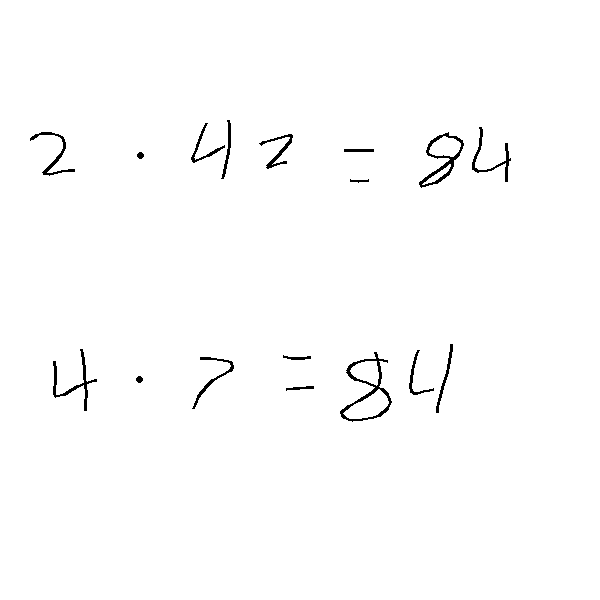 2 · 42 = 84
4 · 7 = 84